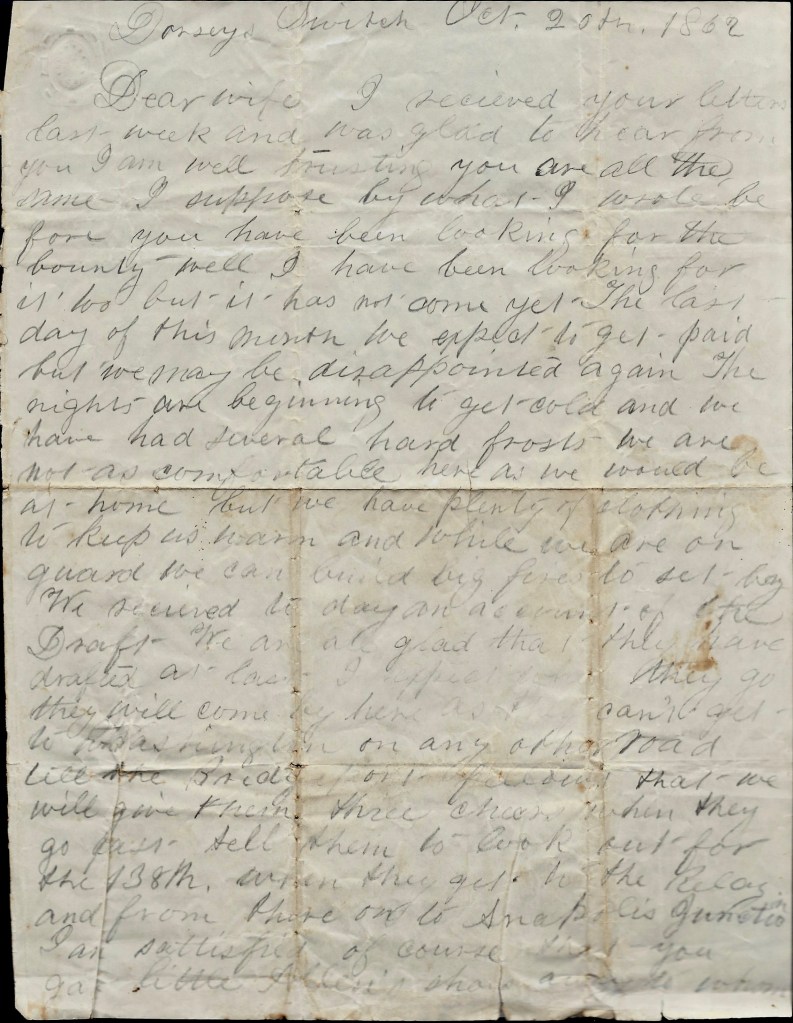 Dorseys Switch Oct. 20th. 1862
Dear wife I recieved your letters
last week and was glad to hear from
you I am well trusting you are all the
same I suppose by what I wrote be
fore you have been looking for the
bounty well I have been looking for
it too but it has not come yet The last
day of this month we expect to get paid
but we may be disappointed again The
nights are beginning to get cold and we
have had several hard frosts we are
not as comfortable here as we would be
at home but we have plenty of clothing
to keep us warm and while we are on
guard we can build big fires to set by
We recieved to day an account of the
Draft We are all glad that they have
drafted at last I expect they go
they will come by here as they can't get
to Washington on any other road
tell the Bridgport that we
will give them three cheers when they
go past tell them to look out for
the 138th. when they get to the Relay
and from there on to Anapolis Junction
I am sattisfied of course that you
got little shoes